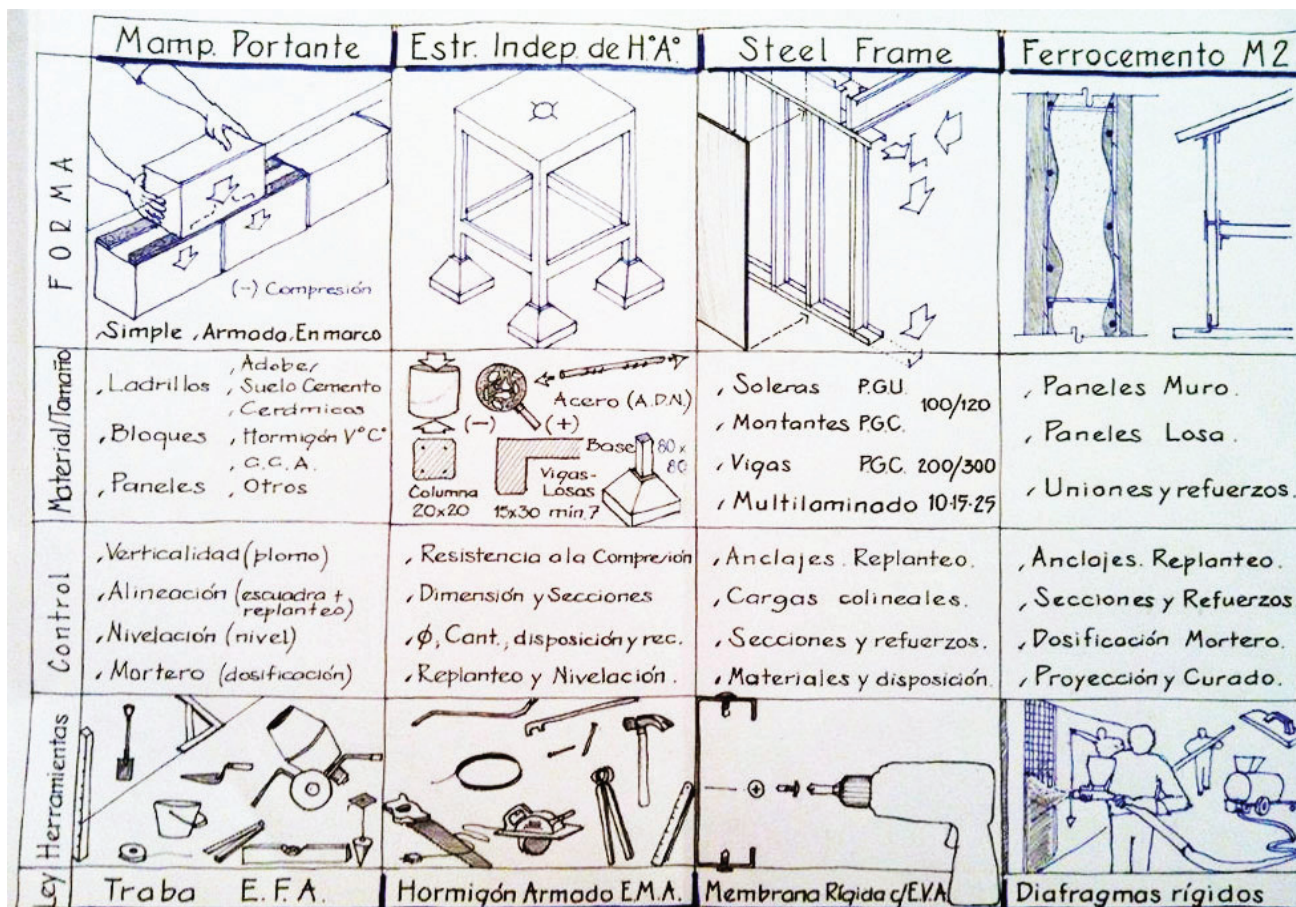 Mamp. Portante
Estr. Indep. de H°A°.
Steel Frame
Ferrocemento M2
FORMA
(-) Compresión
Simple Armada En marco
Material/Tamaño
Ladrillos
Bloques
Paneles
Adobe
Suelo Cemento
Cerámicos
Hormigón V°C°
C.C.A.
Otros
(-)
(+)
Acero (A.D.N.)
Columna
20x20
Vigas-
Losas
15x30 mín. 7
Base 80 x
80
Soleras P.G.U.
100/120
Montantes P.G.C.
Vigas P.G.C. 200/300
Multilaminado 10-15-25
Paneles Muro.
Paneles Losa.
Uniones y refuerzos.
Control
Verticalidad (plomo)
Alineación (escuadra +
replanteo)
Nivelación (nivel)
Mortero (dosificación)
Resistencia a la Compresión
Dimensión y Secciones
ϕ, Cant., disposición y rec.
Replanteo y Nivelación.
Anclajes. Replanteo.
Cargas colineales.
Secciones y refuerzos.
Materiales y disposición.
Anclajes. Replanteo.
Secciones y Refuerzos
Dosificación Mortero.
Proyección y Curado.
Herramientas
Ley
Traba E.F.A.
Hormigón Armado E.M.A.
Membrana Rígida c/E.V.A.
Diafragmas rígidos